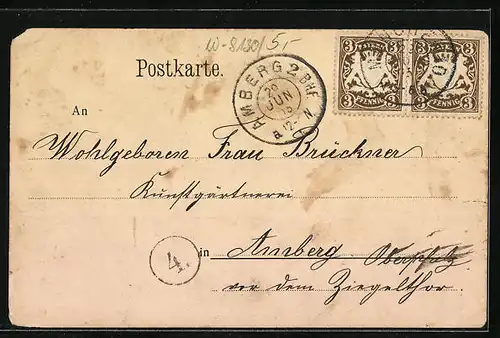 W-8130/5-
Postkarte.
AMBERG 2 BHF.
JUN
BAYERN
3 3
PFENNIG
3 3
BAYERN
3 3
PFENNIG
3 3
An
Wohlgeboren Frau Brückner
Kunstgärtnerei
4.
in Amberg Oberpfalz
vor dem Ziegelthor.